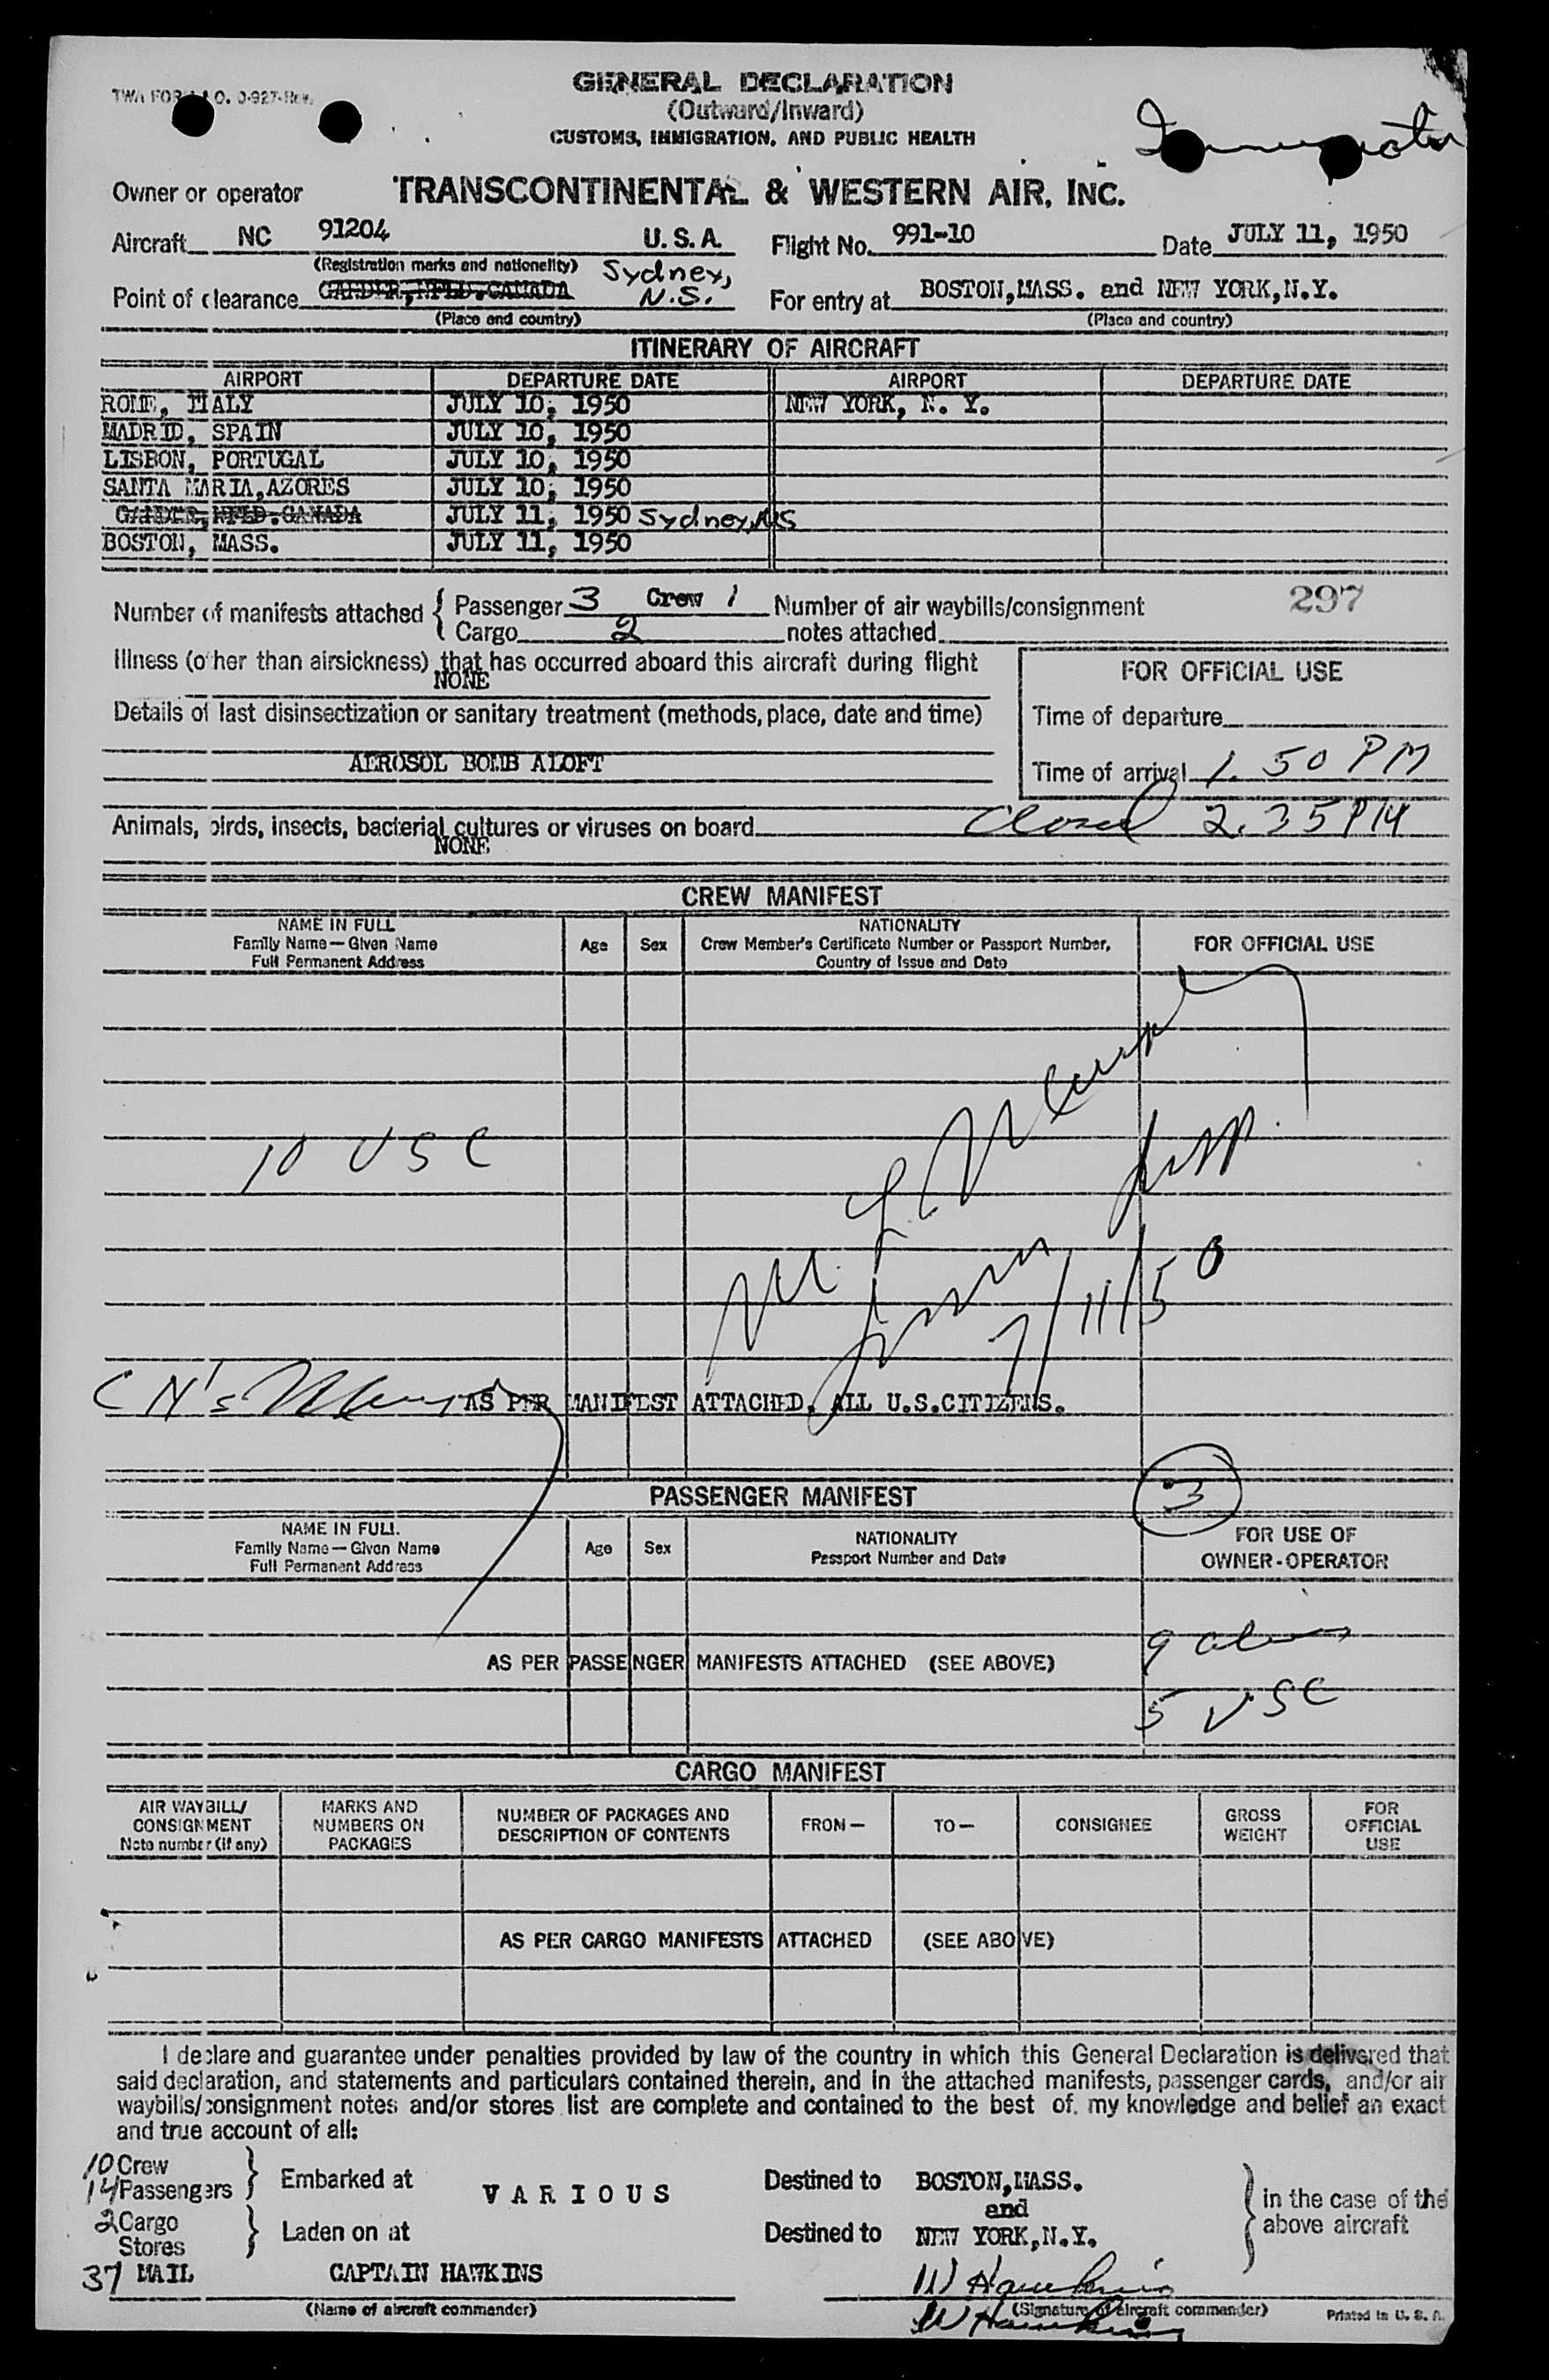 TWA FORM NO. O-927-Rev.
GENERAL DECLARATION
(Outward/Inward)
CUSTOMS, IMMIGRATION, AND PUBLIC HEALTH
Owner or operator TRANSCONTINENTAL & WESTERN AIR, INC.
Aircraft NC 91204 U.S.A. Flight No. 991-10 Date JULY 11, 1950
(Registration marks and nationality)
Point of clearance GANDER, NFLD. CANADA Sydney, N.S. For entry at BOSTON, MASS. and NEW YORK, N.Y.
(Place and country) (Place and country)
ITINERARY OF AIRCRAFT
AIRPORT DEPARTURE DATE AIRPORT DEPARTURE DATE
ROME, ITALY JULY 10, 1950 NEW YORK, N. Y.
MADRID, SPAIN JULY 10, 1950
LISBON, PORTUGAL JULY 10, 1950
SANTA MARIA, AZORES JULY 10, 1950
GANDER, NFLD. CANADA JULY 11, 1950 Sydney, NS
BOSTON, MASS. JULY 11, 1950
Number of manifests attached { Passenger 3 Crew 1 Number of air waybills/consignment 297
Cargo 2 notes attached
Illness (other than airsickness) that has occurred aboard this aircraft during flight
NONE
FOR OFFICIAL USE
Details of last disinsectization or sanitary treatment (methods, place, date and time)
Time of departure
AEROSOL BOMB ALOFT
Time of arrival 1.50 PM
Animals, birds, insects, bacterial cultures or viruses on board Closed 2.35 PM
NONE
CREW MANIFEST
NAME IN FULL
Family Name—Given Name
Full Permanent Address
Age Sex
NATIONALITY
Crew Member's Certificate Number or Passport Number,
Country of Issue and Date
FOR OFFICIAL USE
10 USC
7/11/50
AS PER MANIFEST ATTACHED, ALL U.S.CITIZENS.
PASSENGER MANIFEST 3
NAME IN FULL
Family Name—Given Name
Full Permanent Address
Age Sex
NATIONALITY
Passport Number and Date
FOR USE OF
OWNER-OPERATOR
9 aliens
AS PER PASSENGER MANIFESTS ATTACHED (SEE ABOVE)
5 USC
CARGO MANIFEST
AIR WAYBILL/
CONSIGNMENT
Note number (if any)
MARKS AND
NUMBERS ON
PACKAGES
NUMBER OF PACKAGES AND
DESCRIPTION OF CONTENTS
FROM—
TO—
CONSIGNEE
GROSS
WEIGHT
FOR
OFFICIAL
USE
AS PER CARGO MANIFESTS ATTACHED (SEE ABOVE)
I declare and guarantee under penalties provided by law of the country in which this General Declaration is delivered that
said declaration, and statements and particulars contained therein, and in the attached manifests, passenger cards, and/or air
waybills/consignment notes and/or stores list are complete and contained to the best of my knowledge and belief an exact
and true account of all:
10 Crew
14 Passengers } Embarked at VARIOUS Destined to BOSTON, MASS.
and
2 Cargo
Stores } Laden on at Destined to NEW YORK, N.Y.
} in the case of the
above aircraft
37 MAIL CAPTAIN HAWKINS W Hawkins
(Name of aircraft commander) (Signature of aircraft commander) Printed in U. S. A.
W Hawkins